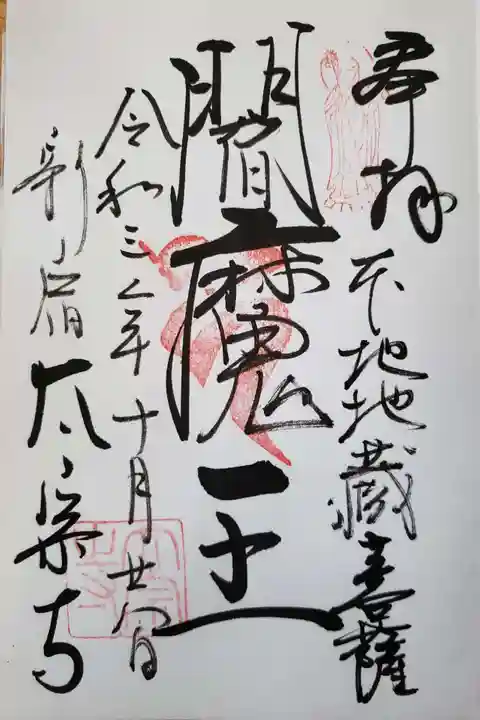 奉拝
本地地蔵菩薩
閻魔王
令和三年十月廿八日
新宿太宗寺